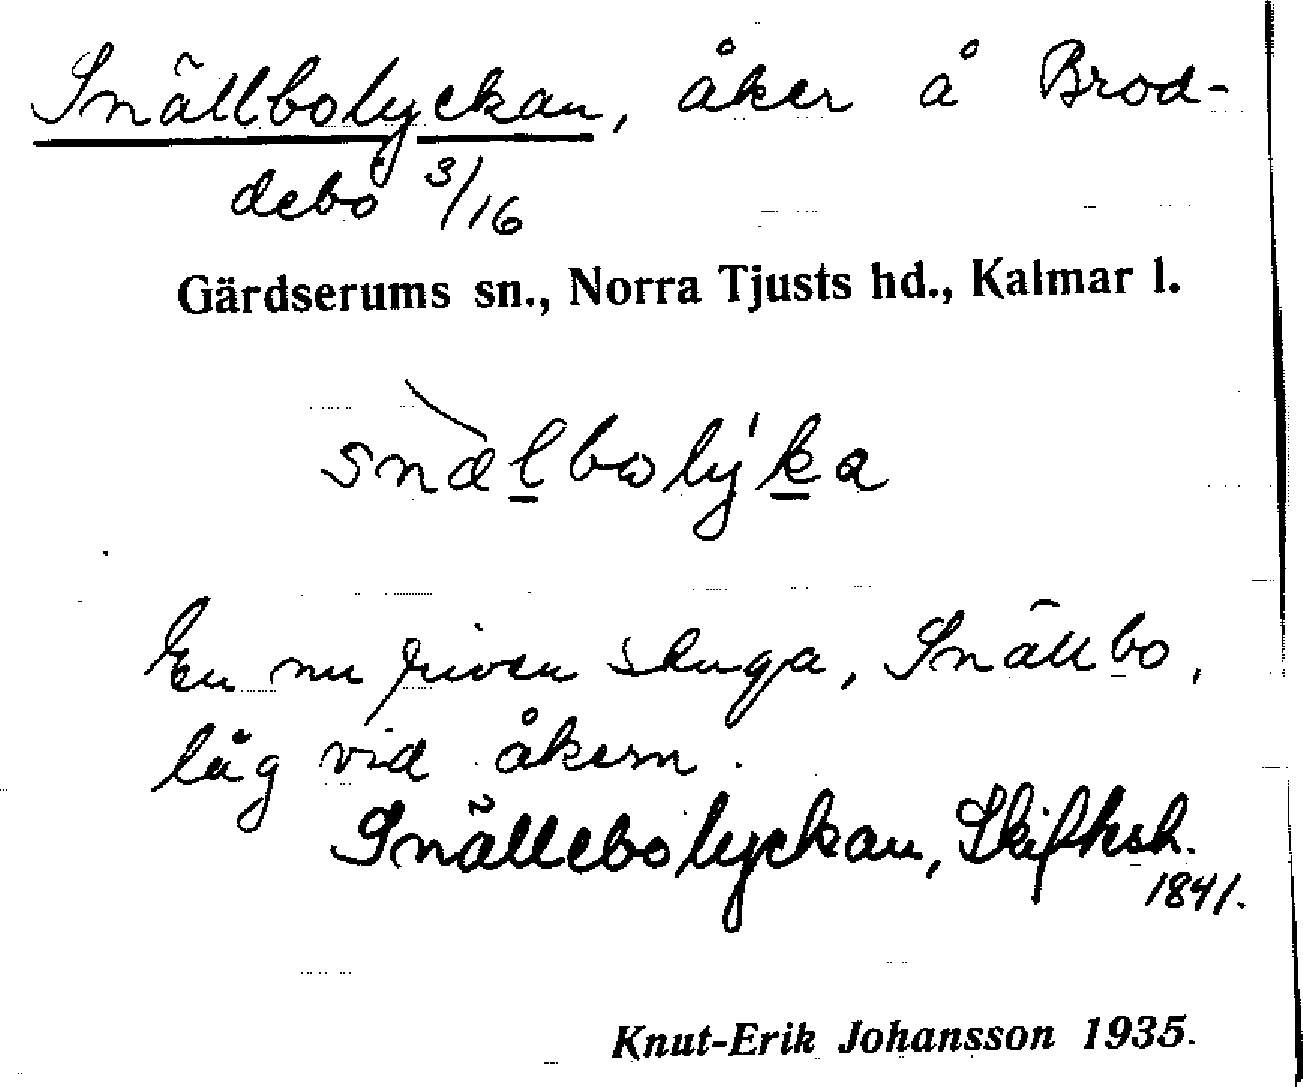 Snällbolyckan, åker å Brod-
debo 3/16
Gärdserums sn., Norra Tjusts hd., Kalmar l.
snæ̀lbωly̍ka
En nu riven stuga, Snällbo,
låg vid åkern.
Snällebolyckan, Skifksh.
1841.
Knut-Erik Johansson 1935.